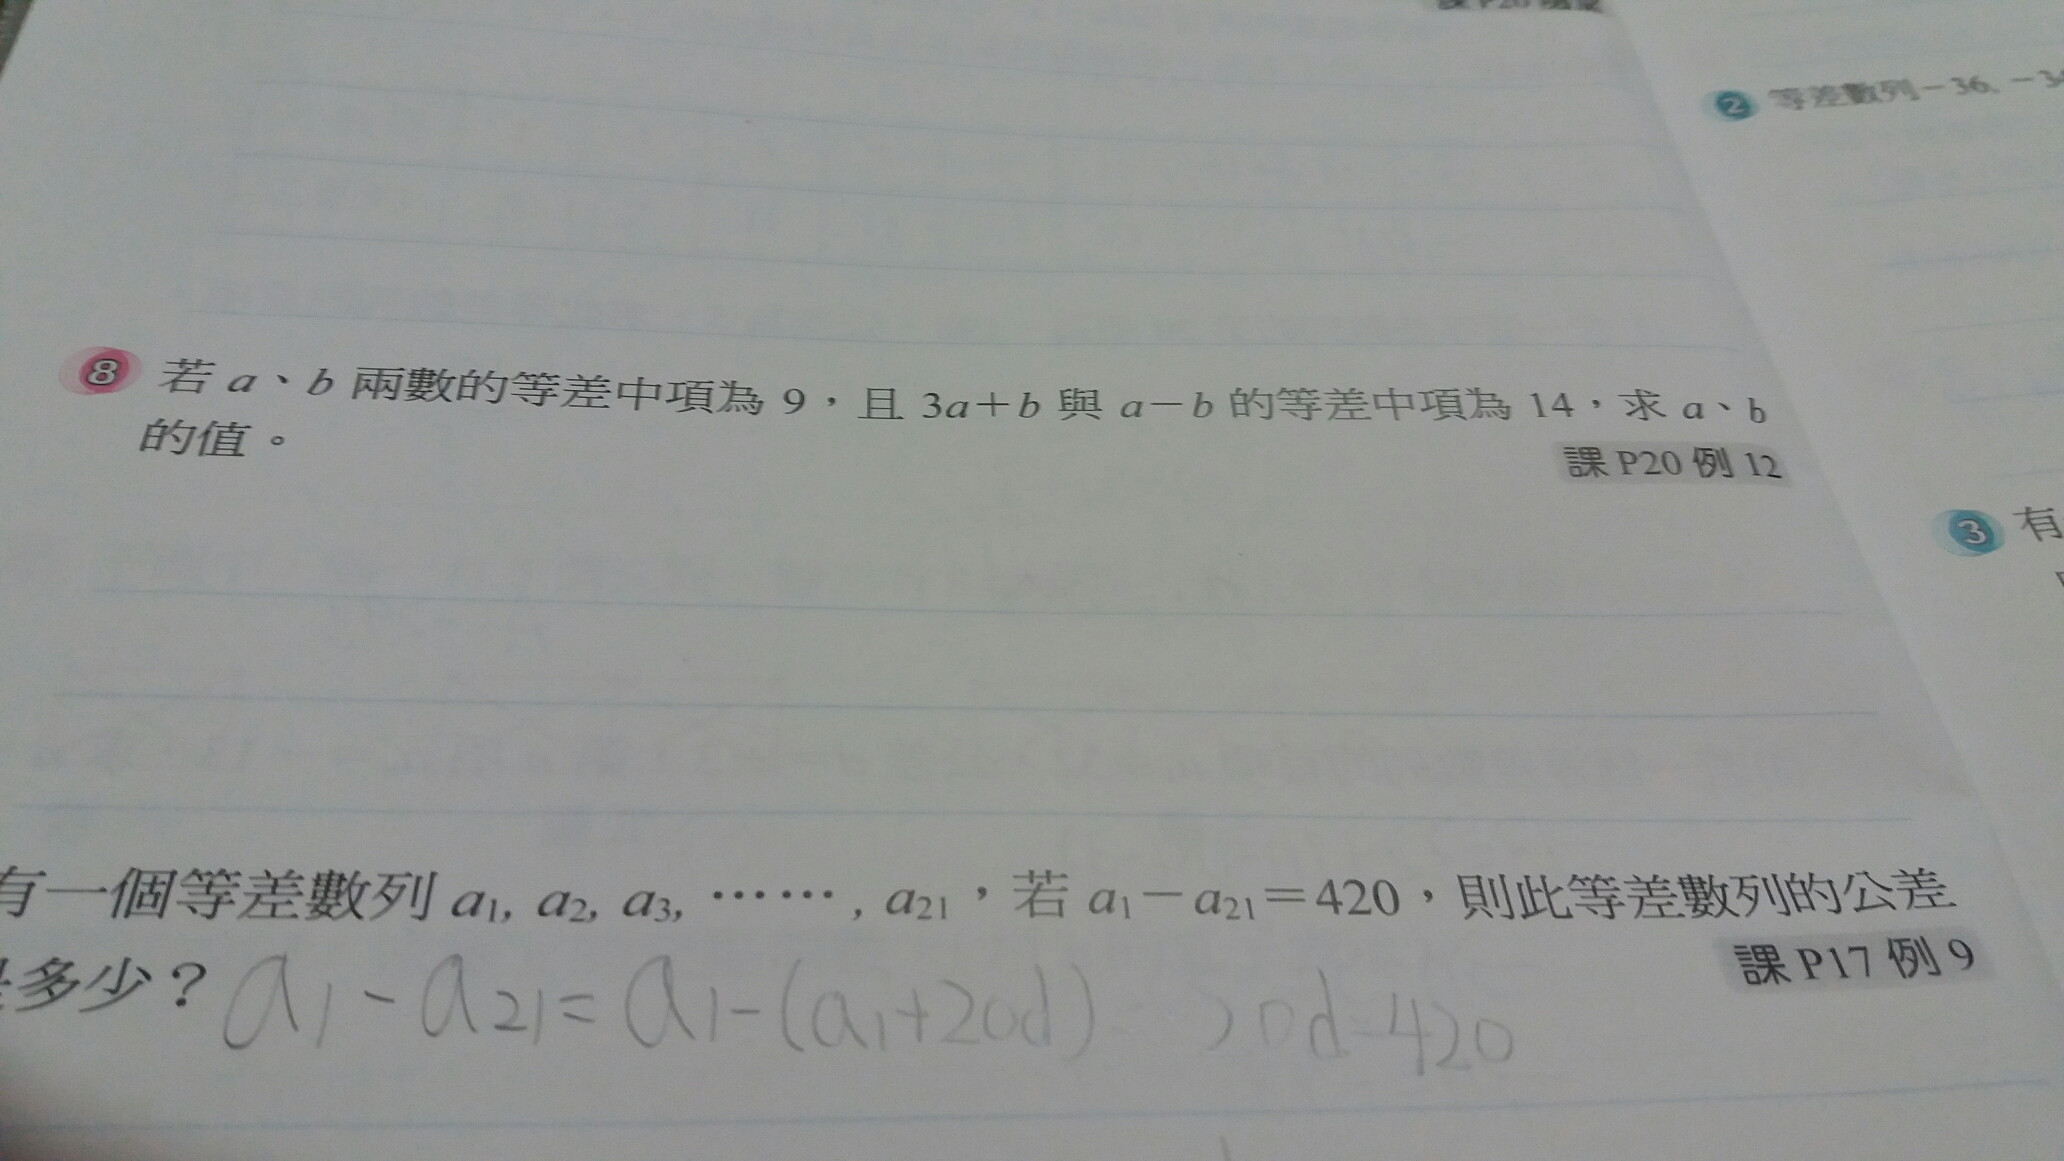 ② 等差數列－36, －3
⑧ 若 a、b 兩數的等差中項為 9，且 3a＋b 與 a－b 的等差中項為 14，求 a、b
的值。
課 P20 例 12
③ 有
有一個等差數列 a₁, a₂, a₃, ⋯⋯, a₂₁，若 a₁－a₂₁＝420，則此等差數列的公差
是多少？
課 P17 例 9
a₁－a₂₁＝a₁－(a₁＋20d) 20d 420